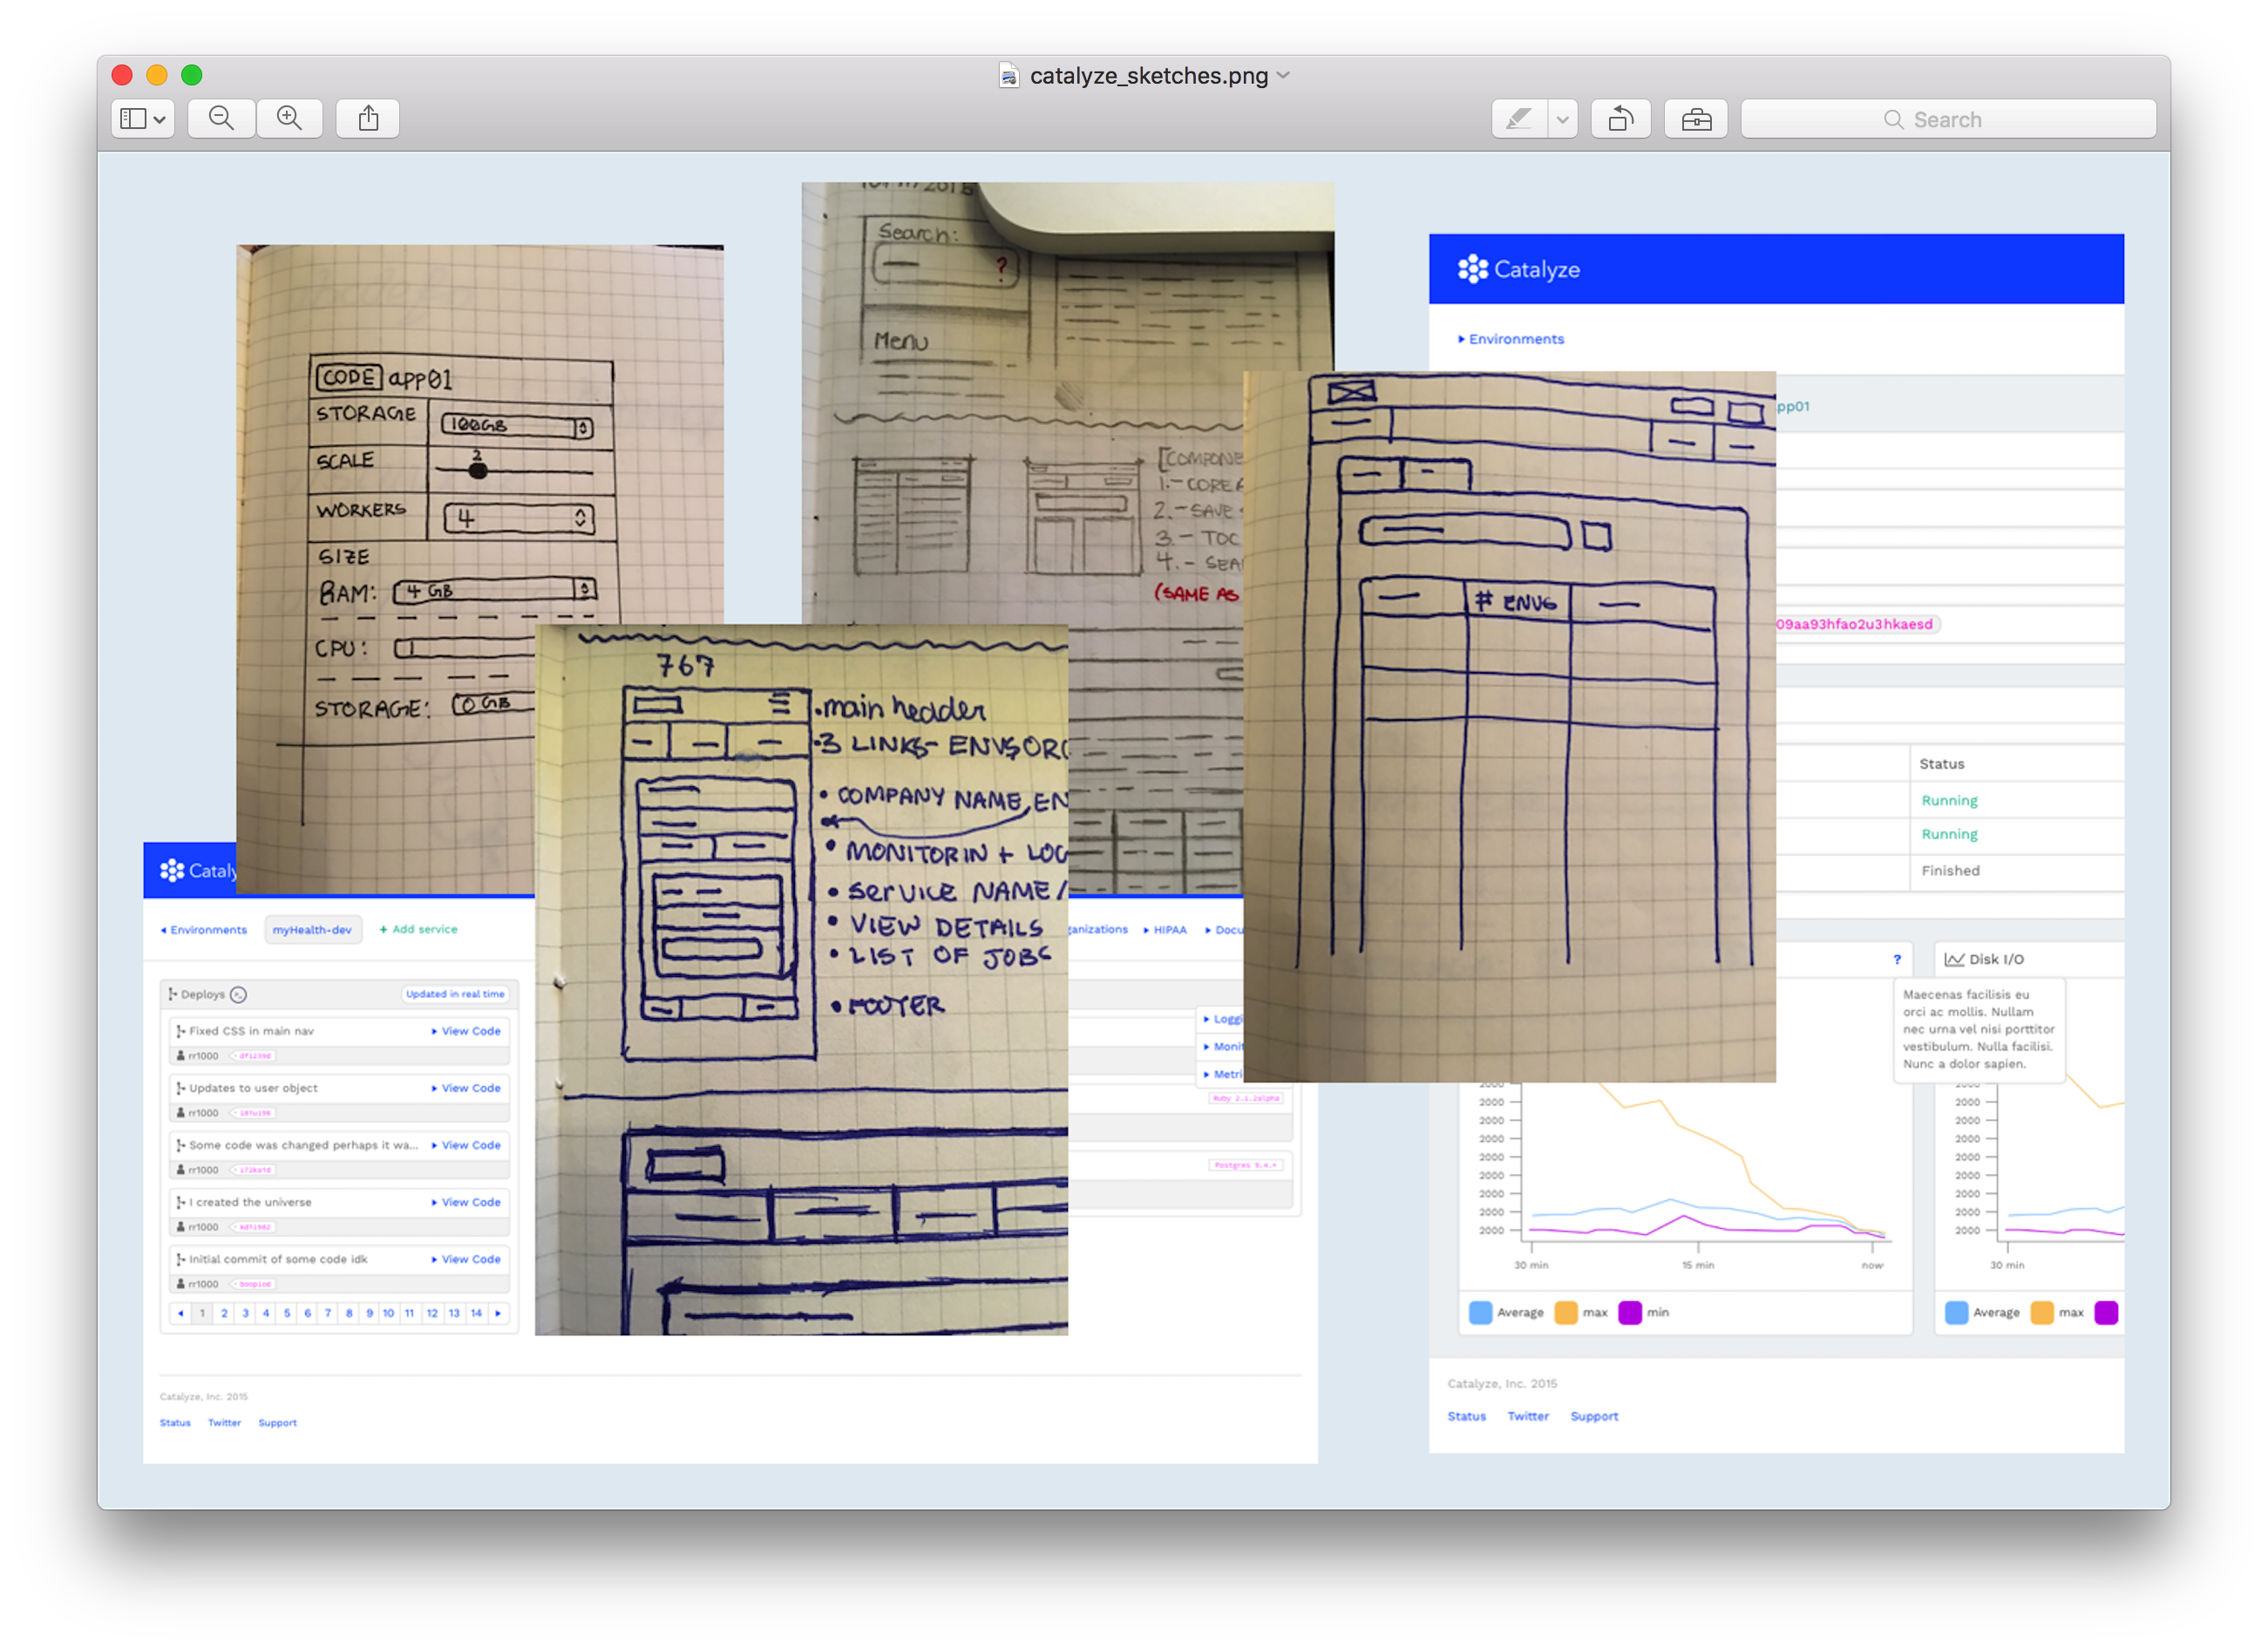 catalyze_sketches.png
Search
CODE app01
STORAGE 100GB
SCALE 2
WORKERS 4
SIZE
RAM: 4 GB
CPU: 1
STORAGE: 0 GB
Search:
?
Menu
1.- CORE
2.- SAVE
3.- TOC
4.-
(SAME AS
# ENVS
767
.main header
.3 LINKS- ENVS
• COMPANY NAME, EN
• MONITORIN + LOG
• SERVICE NAME /
• VIEW DETAILS
• LIST OF JOBS
• FOOTER
Catalyze
Environments
pp01
09aa93hfao2u3hkaesd
Status
Running
Running
Finished
?
Disk I/O
Maecenas facilisis eu
orci ac mollis. Nullam
nec urna vel nisi porttitor
vestibulum. Nulla facilisi.
Nunc a dolor sapien.
2000 2000
2000 2000
2000 2000
2000 2000
2000 2000
2000 2000
2000 2000
2000 2000
2000 2000
30 min 15 min now 30 min
Average max min Average max
Catalyze, Inc. 2015
Status Twitter Support
Cataly
Environments myHealth-dev + Add service
ganizations HIPAA Docu
Deploys Updated in real time
Fixed CSS in main nav View Code
rr1000
Updates to user object View Code
rr1000
Some code was changed perhaps it wa... View Code
rr1000
I created the universe View Code
rr1000
Initial commit of some code idk View Code
rr1000
1 2 3 4 5 6 7 8 9 10 11 12 13 14
Loggi
Monit
Metri
Ruby 2.1.2alpha
Postgres 9.4.*
Catalyze, Inc. 2015
Status Twitter Support